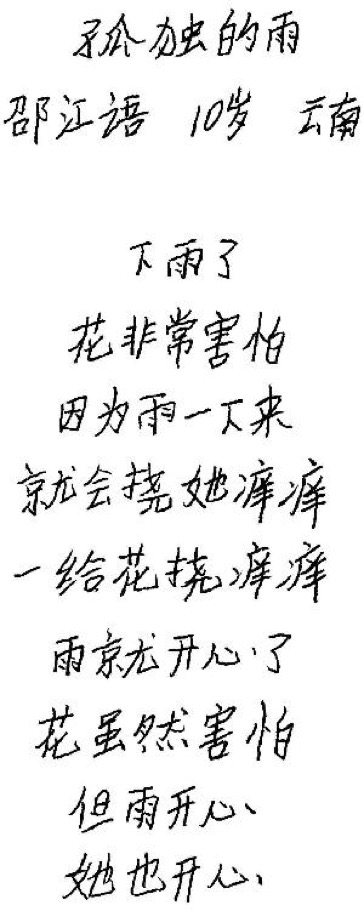 孤独的雨
邵江语 10岁 云南
下雨了
花非常害怕
因为雨一下来
就会挠她痒痒
一给花挠痒痒
雨就开心了
花虽然害怕
但雨开心
她也开心